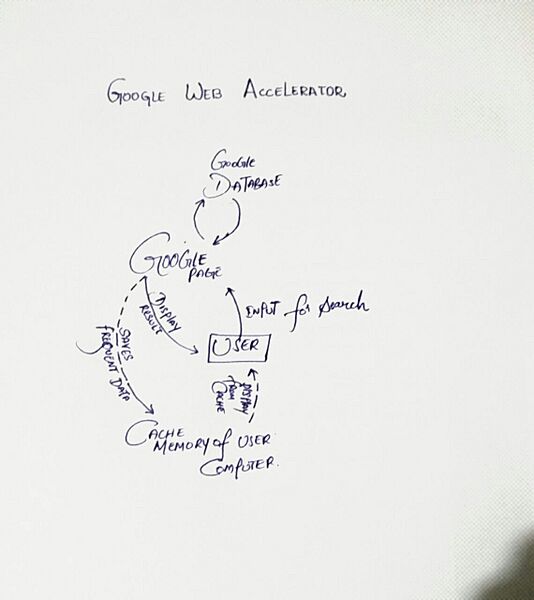 GOOGLE WEB ACCELERATOR
Google
DATABASE
GOOGLE
PAGE
DISPLAY
RESULT
INPUT for search
USER
SAVES
FREQUENT DATA
DISPLAY
FROM
CACHE
CACHE
MEMORY of USER
COMPUTER.